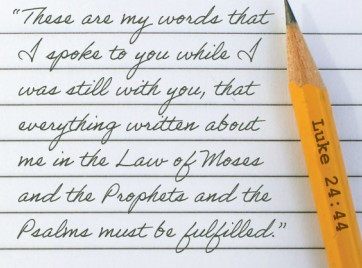 “These are my words that
I spoke to you while I
was still with you, that
everything written about
me in the Law of Moses
and the Prophets and the
Psalms must be fulfilled.”
Luke 24:44